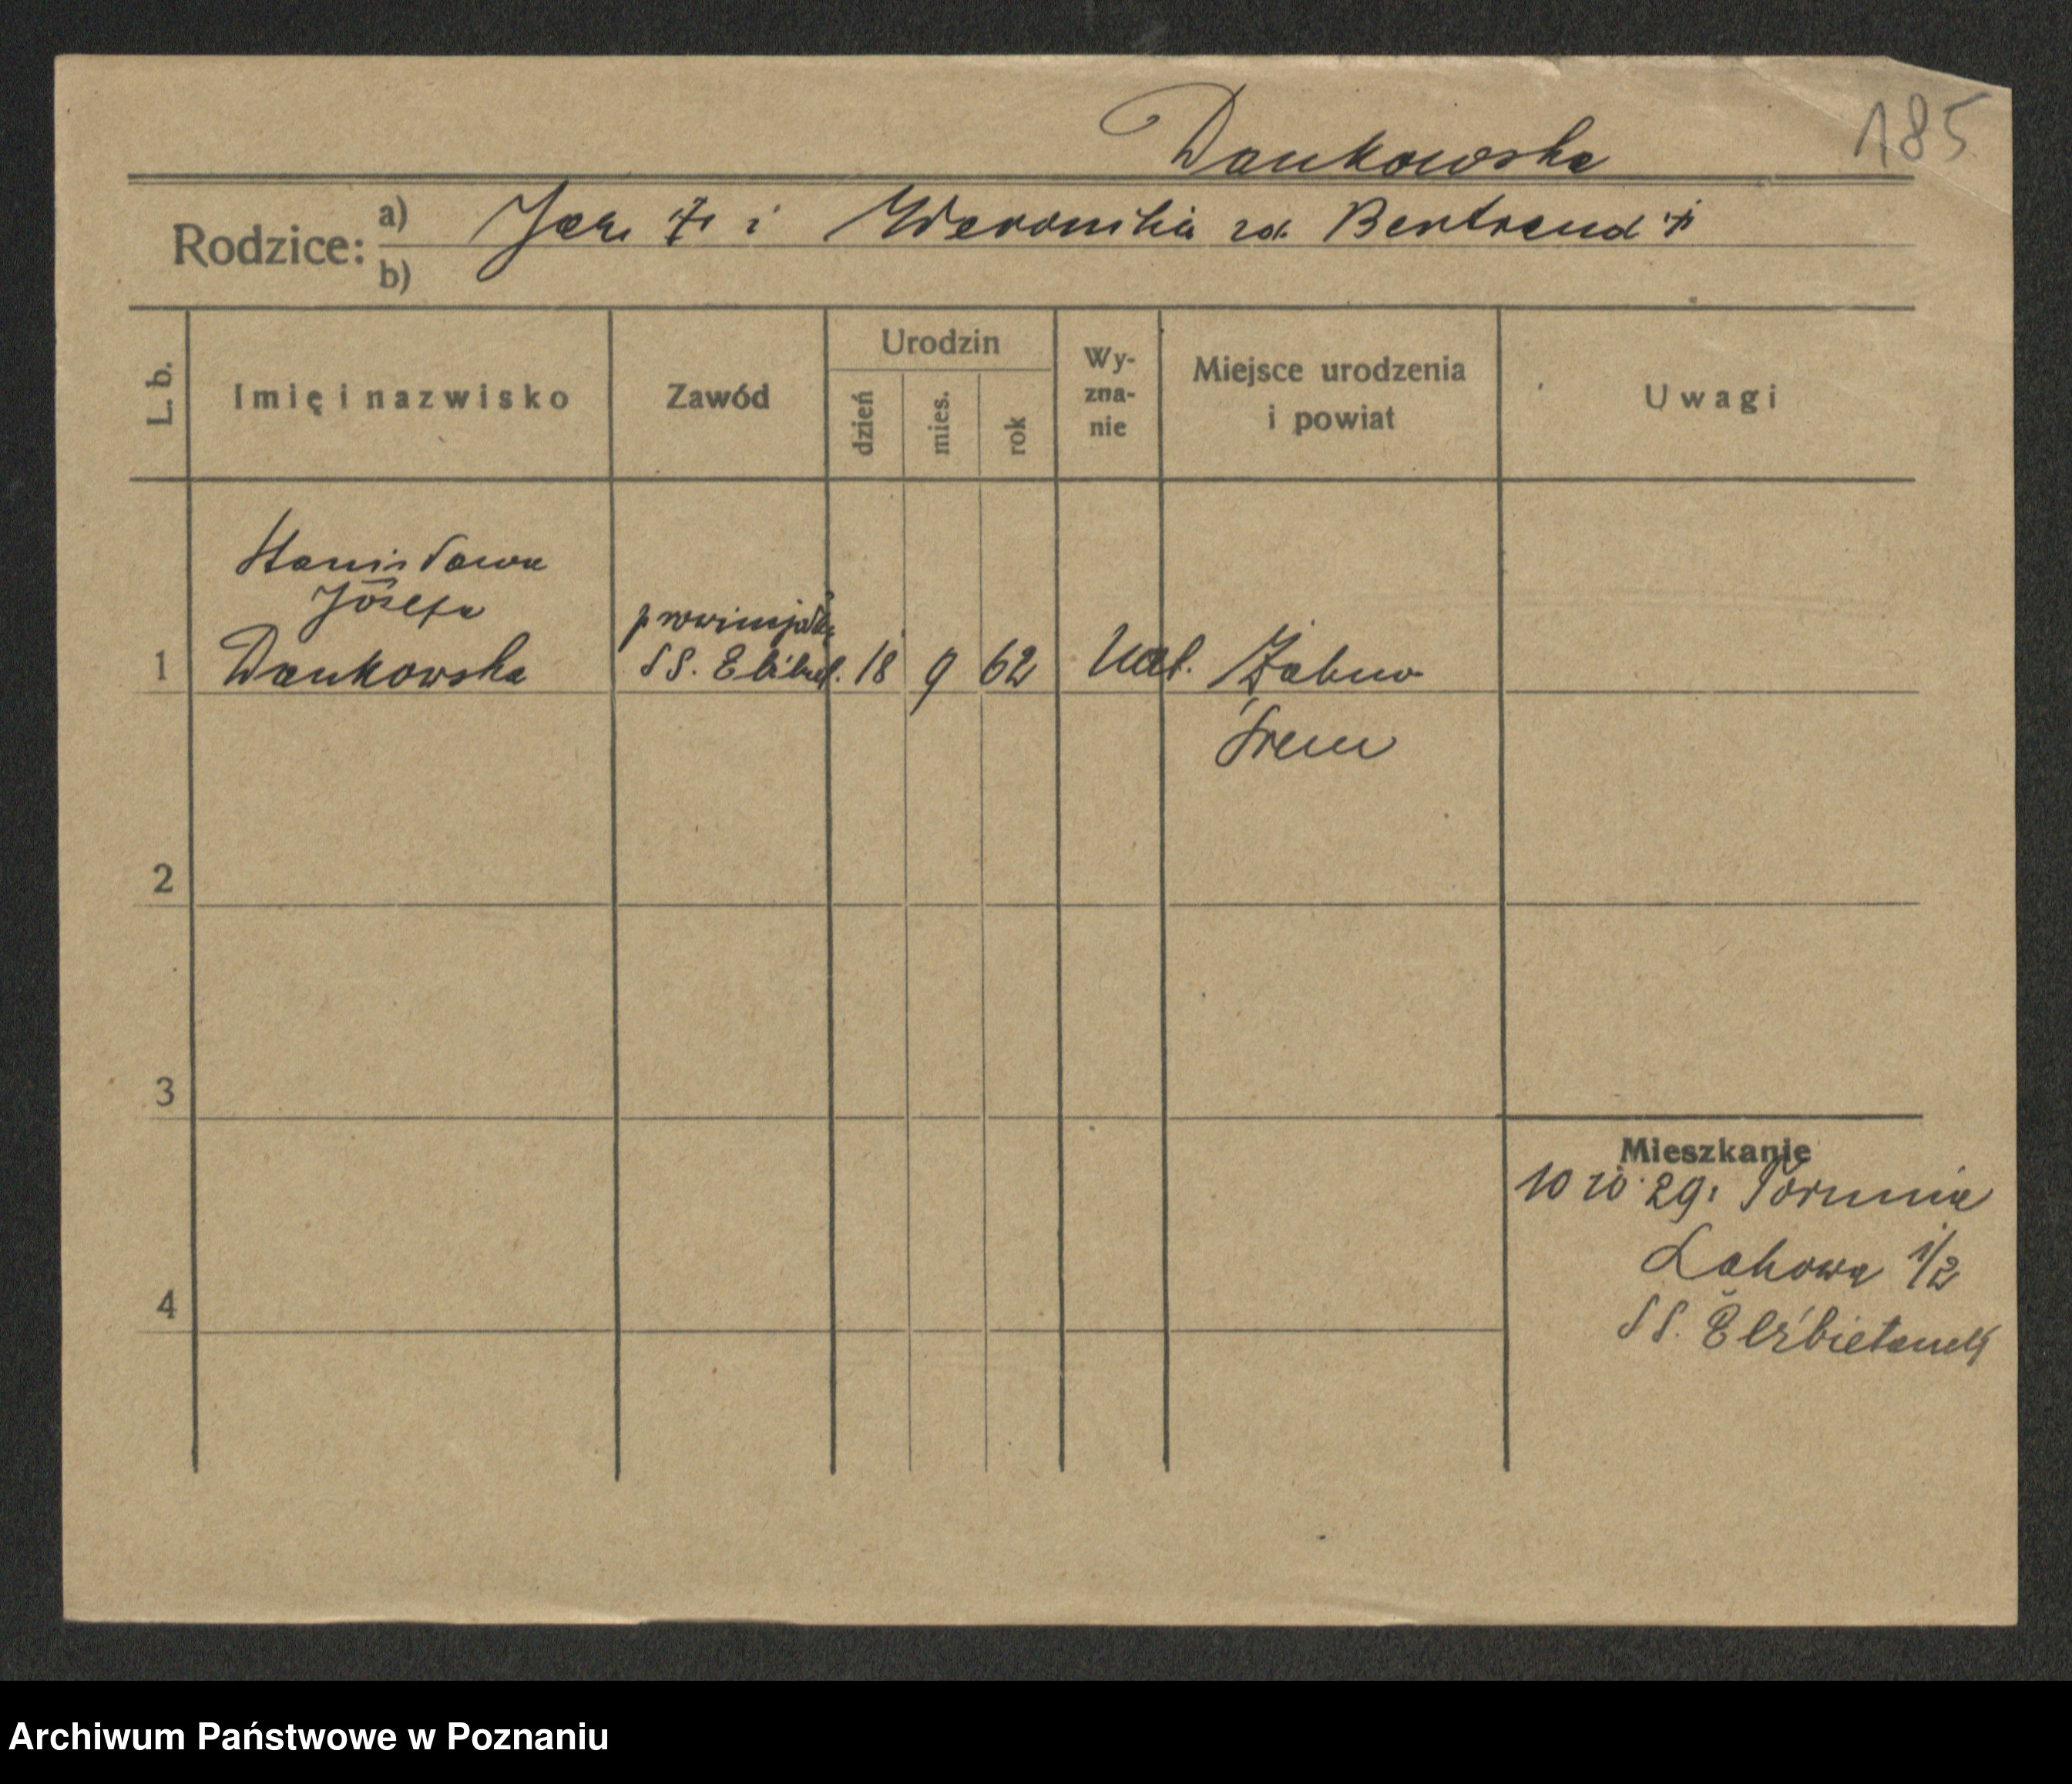 Dankowska
185
Rodzice: a) Jan † i Weronika zd. Bertrand †
b)
L. b.
Imię i nazwisko
Zawód
Urodzin
dzień
mies.
rok
Wy-
zna-
nie
Miejsce urodzenia
i powiat
Uwagi
Stanisława
Józefa
1 Dankowska
prowincjałka
SS. Elżbiet. 18 9 62 kat. Żabno
Śrem
2
3
4
Mieszkanie
10 10 29. Torunia
Łąkowa 1/2
SS. Elżbietanek
Archiwum Państwowe w Poznaniu